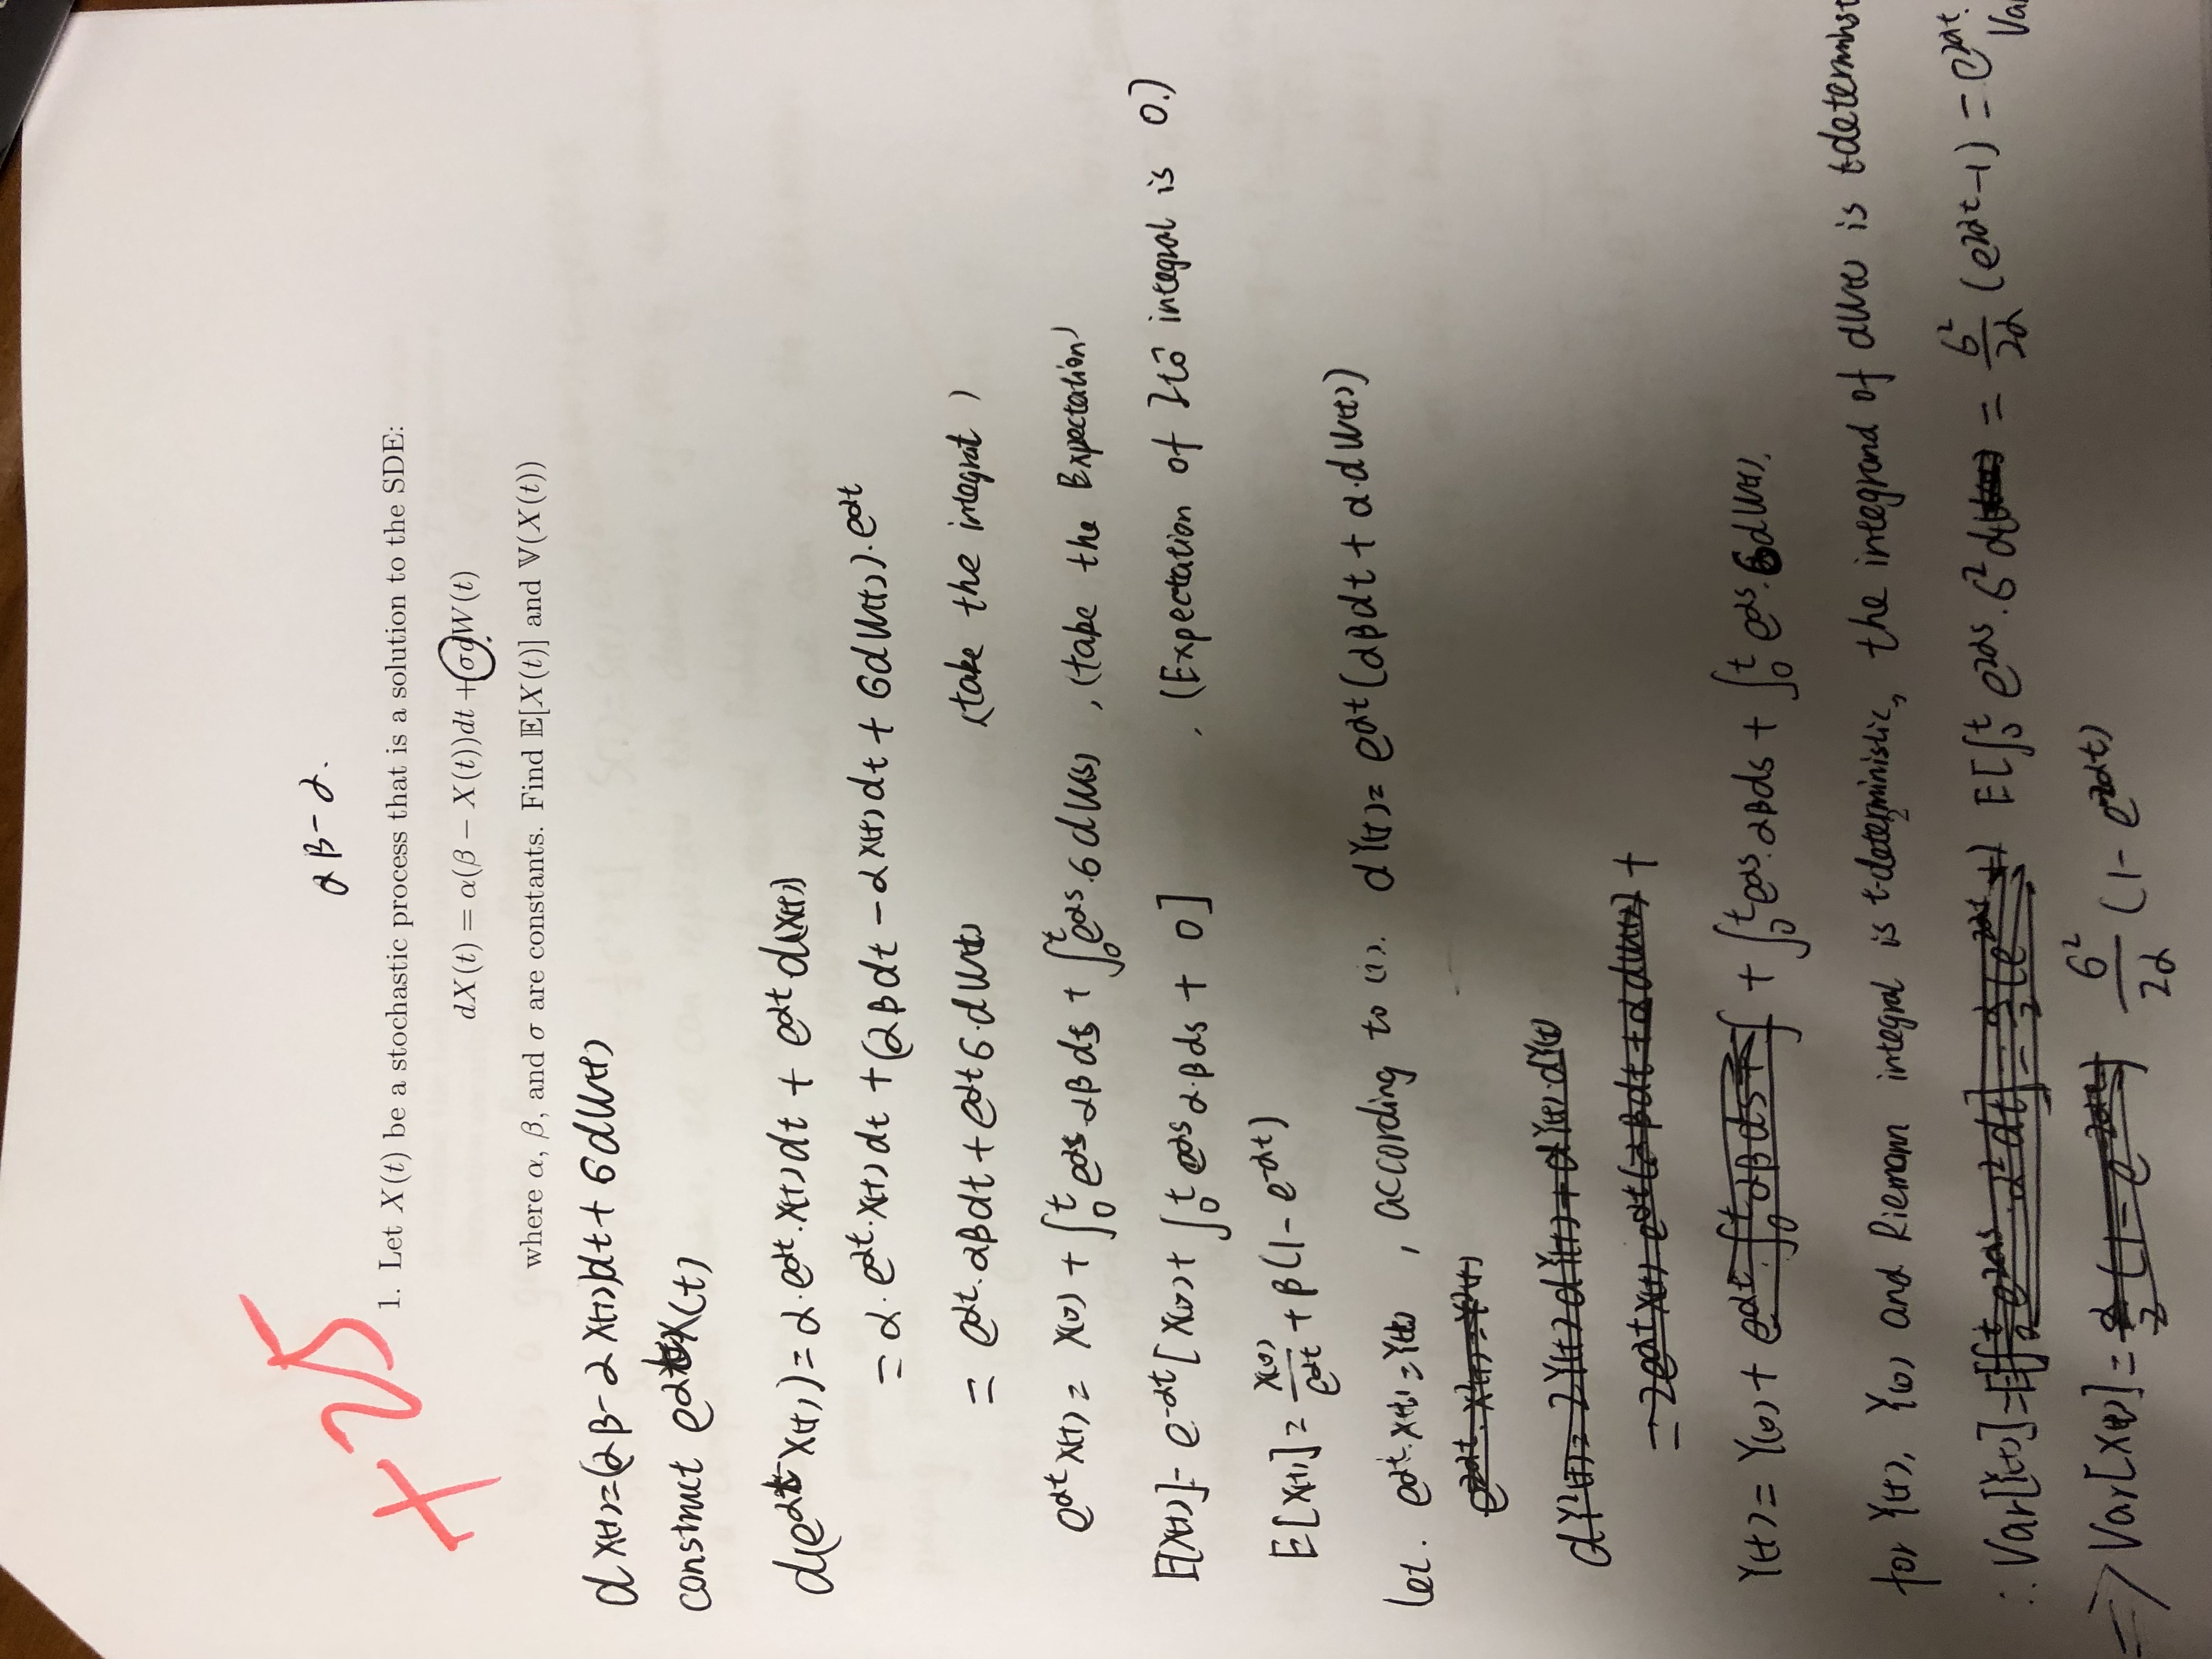 +25
αβ-α.
1. Let X(t) be a stochastic process that is a solution to the SDE:
dX(t) = α(β − X(t))dt + σdW(t)
where α, β, and σ are constants. Find 𝔼[X(t)] and 𝕍(X(t))
dX(t)=(αβ-αX(t))dt+σdW(t)
construct e^{αt}X(t)
d(e^{αt}X(t))=α·e^{αt}·X(t)dt + e^{αt}d(X(t))
=α·e^{αt}·X(t)dt +(αβdt-αX(t)dt+σdW(t))·e^{αt}
= e^{αt}·αβdt+e^{αt}σ·dW(t) (take the integral)
e^{αt}X(t)= X(0) + ∫_0^t e^{αs}·αβds + ∫_0^t e^{αs}·σdW(s) , (take the Expectation)
E[X(t)]= e^{-αt}[X(0)+ ∫_0^t e^{αs}α·βds + 0] . (Expectation of Itô integral is 0.)
E[X(t)]= X(0)/e^{αt} + β(1-e^{-αt})
let. e^{αt}·X(t)=Y(t) , according to (1). dY(t)= e^{αt}(αβdt+α·dW(t))
e^{2αt}·X²(t)=Y²(t)
dY²(t)= 2Y(t)dY(t)+dY(t)·dY(t)
=2e^{αt}X(t)·e^{αt}(αβdt+αdW(t)) +
Y(t)= Y(0)+ e^{αt}·∫_0^t αβds+∫ + ∫_0^t e^{αs}·αβds + ∫_0^t e^{αs}·σdW(s).
for Y(t), Y(0) and Riemann integral is t-deterministic, the integrand of dW(t) is t-determinist
∴ Var[Y(t)]=E[∫_0^t e^{2αs}·α²dt]=α/2(e^{2αt}-1) E[∫_0^t e^{2αs}·σ²d = σ²/2α (e^{2αt}-1) = e^{2αt}.
Va
⇒ Var[X(t)]= α/2(1-e^{-2αt}) σ²/2α (1-e^{-2αt})